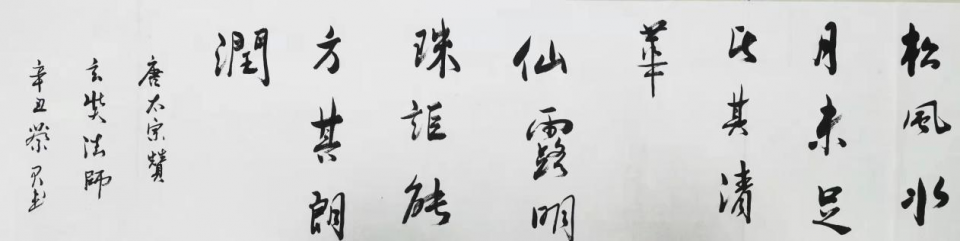 松風水
月未足
比其清
華
仙露明
珠詎能
方其朗
潤
唐太宗贊
玄奘法師
辛丑榮